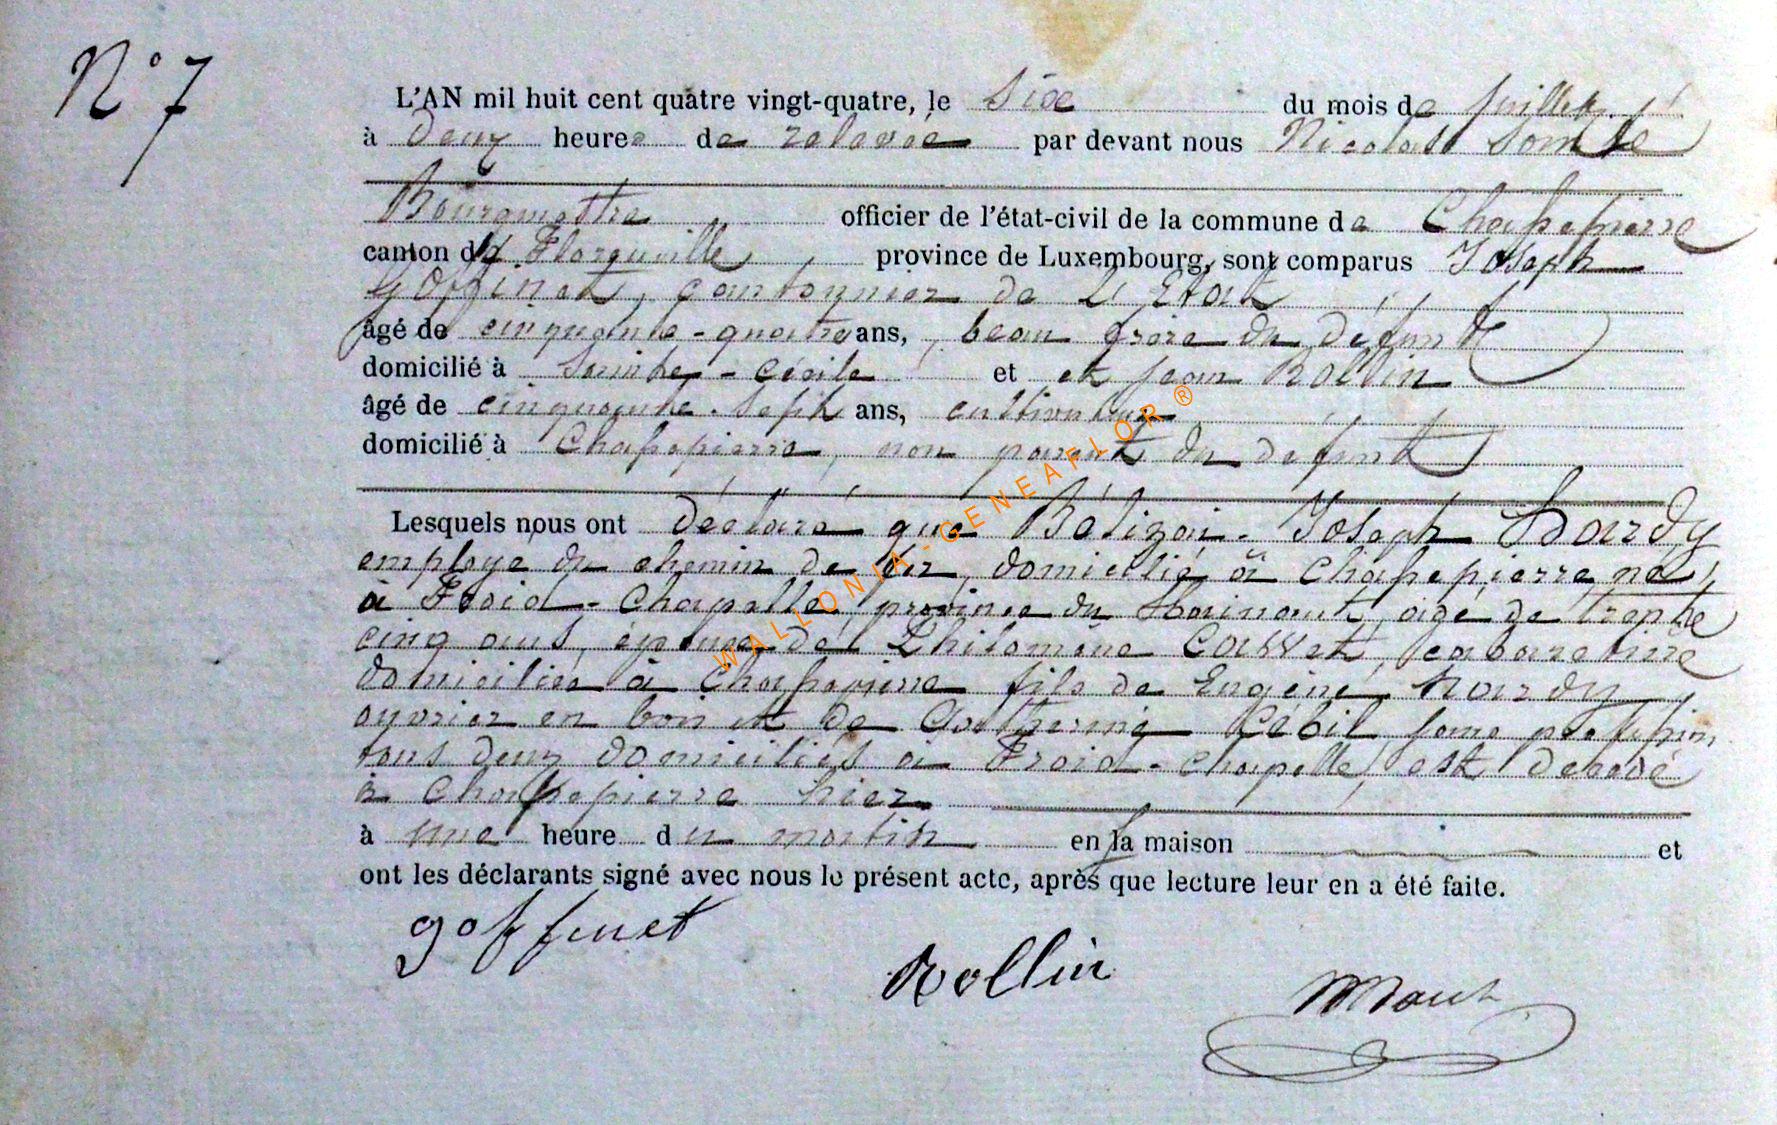 N° 7
L'AN mil huit cent quatre vingt-quatre, le six du mois de juillet
à deux heures de relevée par devant nous Nicolas
Bourgmestre officier de l'état-civil de la commune de Chassepierre
canton de Florenville province de Luxembourg, sont comparus Joseph
Goffinet, cantonnier de l'Etat
âgé de cinquante-quatre ans, beau frère du défunt
domicilié à Sainte-Cécile et et Jean Rollin
âgé de cinquante-sept ans, cultivateur
domicilié à Chassepierre, non parent du défunt
Lesquels nous ont déclaré que Joseph Hardy
employé du chemin de fer, domicilié à Chassepierre, né
à Froid-Chapelle, province du Hainaut, âgé de trente
cinq ans, époux de Philomène cabaretière
domiciliée à Chassepierre fils de Eugène Hardy
ouvrier en bois et de Catherine
tous deux domiciliés à Froid-Chapelle, est décédé
à Chassepierre hier
à une heure du matin en la maison et
ont les déclarants signé avec nous le présent acte, après que lecture leur en a été faite.
Goffinet
Rollin
WALLONIA-GENEAFLOR®